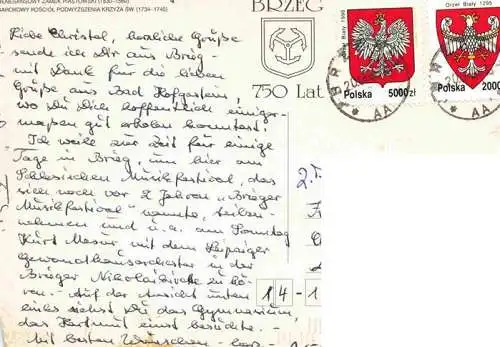 RENESANSOWY ZAMEK PIASTOWSKI (1530-1560)
BAROKOWY KOŚCIÓŁ PODWYŻSZENIA KRZYŻA ŚW (1734-1745)
BRZEG
750 Lat
Orzeł Biały 1990
Polska 5000 zł
Orzeł Biały 1295
Polska 2000
Liebe Christel, herzliche Grüße
sende ich Dir aus Brieg -
mit Dank für die lieben
Grüße aus Bad Hofgastein,
wo Du Dich hoffentlich einiger-
maßen gut erholen konntest.
Ich weile zur Zeit für einige
Tage in Brieg, um hier am
Schlesischen Musikfestival, das
sich noch vor 2 Jahren "Brieger
Musikfestival" nannte, teilzu-
nehmen und u. a. am Sonntag
Kurt Masur mit dem Leipziger
Gewandhausorchester in der
Brieger Nikolaikirche zu hö-
ren. - Auf der Ansicht unten
links siehst Du das Gymnasium,
das Hartmut einst besuchte. -
Mit besten Wünschen - herz-
2.
14-1